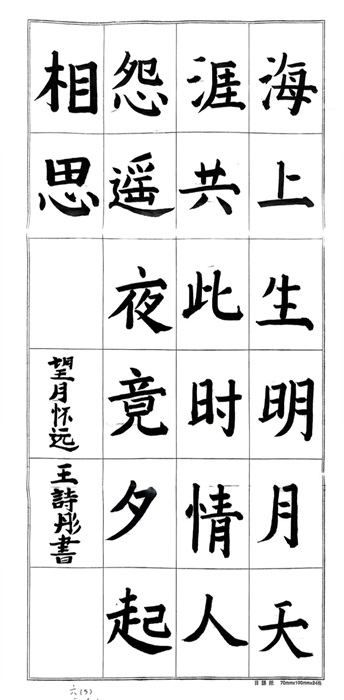 海上生明月天
涯共此时情人
怨遥夜竟夕起
相思
望月怀远
王詩彤書
日課紙 70mmx100mmx24格
六(3)